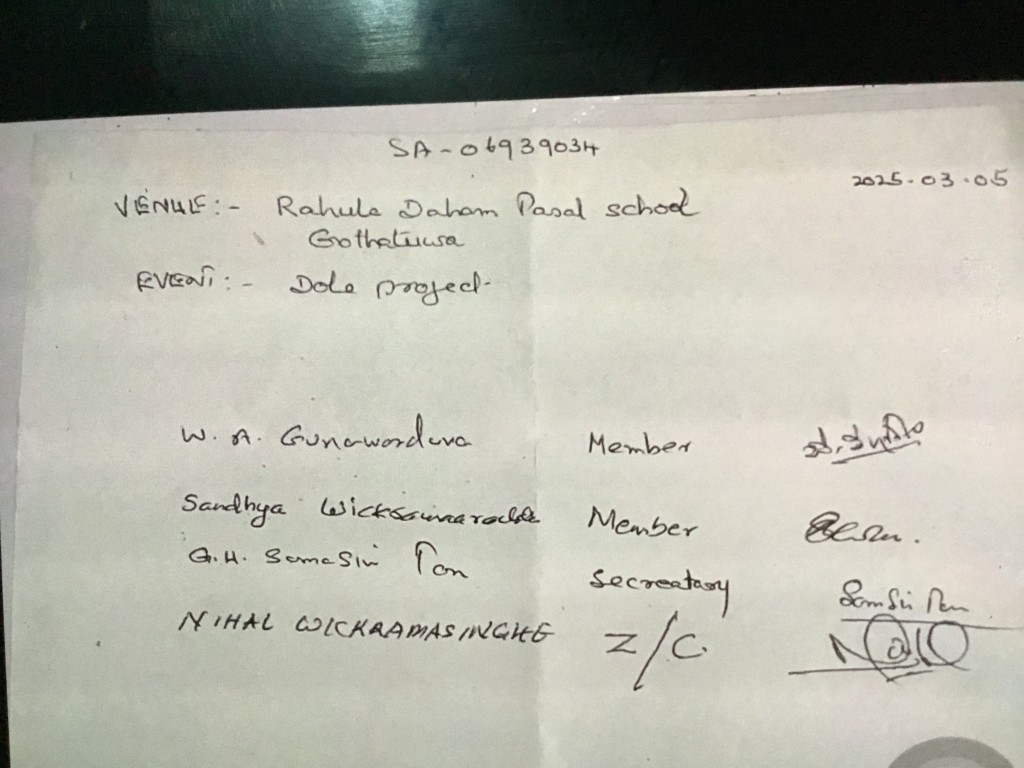 SA-06939034
2025.03.05
VENUE:- Rahula Daham Pasal school
Gothatuwa
EVENT:- Dola project
W. A. Gunawardana Member
Sandhya Member
G.H. SamaSiri Pan Secreatary SamSiri Pan
NIHAL WICKRAMASINGHE Z/C